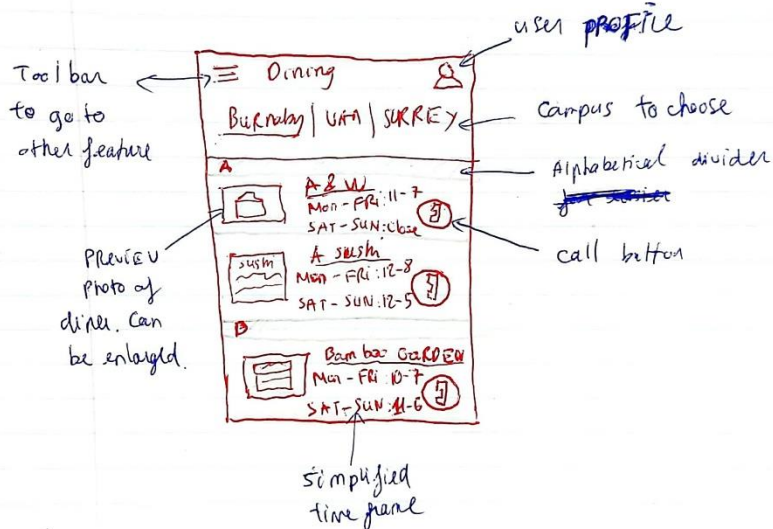 user PROFILE
Toolbar
to go to
other feature
Dining
Burnaby | VAN | SURREY
campus to choose
Alphabetical divider
A
A & W
Mon - FRi: 11 - 7
SAT - SUN: Close
call button
PREVIEW
photo of
diner. Can
be enlarged.
SUSHI
A SUSHI
Mon - FRi: 12-8
SAT - SUN: 12-5
B
Bamboo GARDEN
Mon - FRi: 10-7
SAT - SUN: 11-6
simplified
time frame